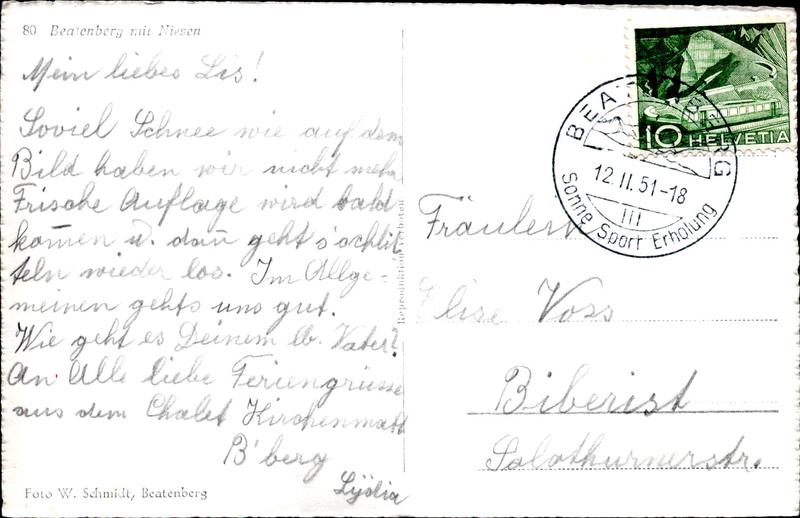 80 Beatenberg mit Niesen
Mein liebes Lis!
Soviel Schnee wie auf dem
Bild haben wir nicht mehr
Frische Auflage wird bald
kom̄en u. dan̄ geht s'schlit
teln wieder los. Im Allge-
meinen gehts uns gut.
Wie geht es Deinem lb. Vater?
An Alle liebe Feriengrüsse
aus dem Chalet Kirchenmatt
B'berg
Lydia
Foto W. Schmidt, Beatenberg
Reproduktion verboten
10 HELVETIA
BEATENBERG
12.II.51-18
III
Sonne Sport Erholung
Fräulein
Elise Voss
Biberist
Solothurnerstr.